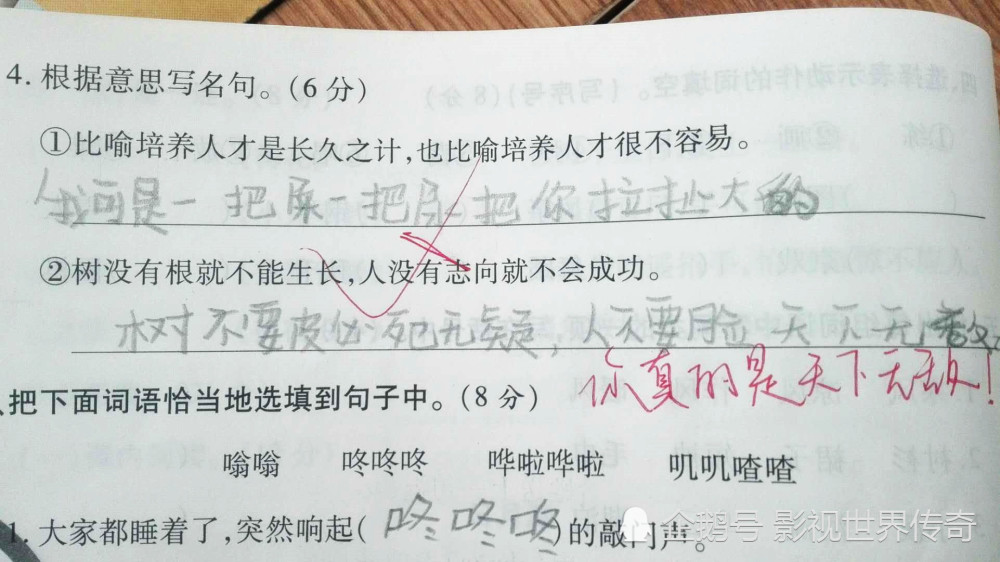 4. 根据意思写名句。(6 分)
①比喻培养人才是长久之计,也比喻培养人才很不容易。
我可是一把屎一把尿把你拉扯大的
②树没有根就不能生长,人没有志向就不会成功。
树不要皮必死无疑,人不要脸天下无敌
你真的是天下无敌!
、把下面词语恰当地选填到句子中。(8 分)
嗡嗡 咚咚咚 哗啦哗啦 叽叽喳喳
1. 大家都睡着了,突然响起(咚咚咚)的敲门声。
企鹅号 影视世界传奇